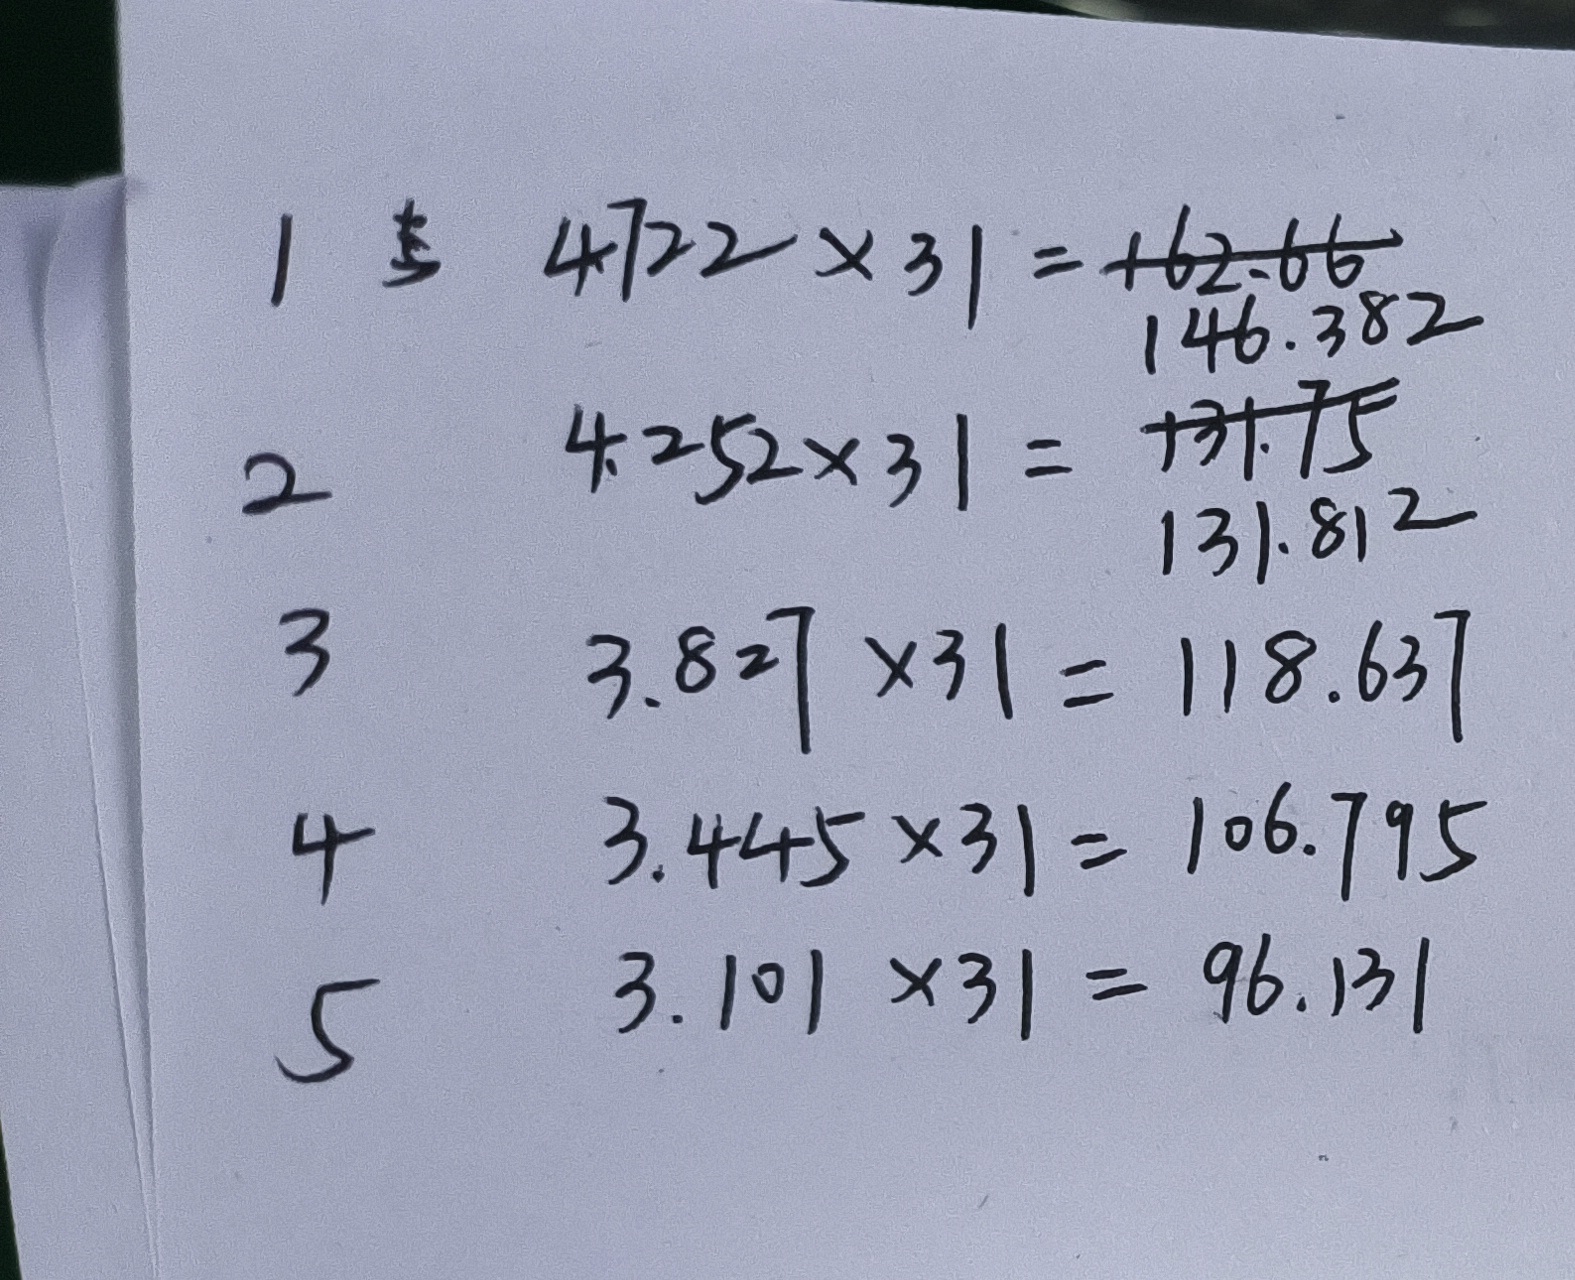 1 4.722 × 31 = 162.66
146.382
2 4.252 × 31 = 131.75
131.812
3 3.827 × 31 = 118.637
4 3.445 × 31 = 106.795
5 3.101 × 31 = 96.131